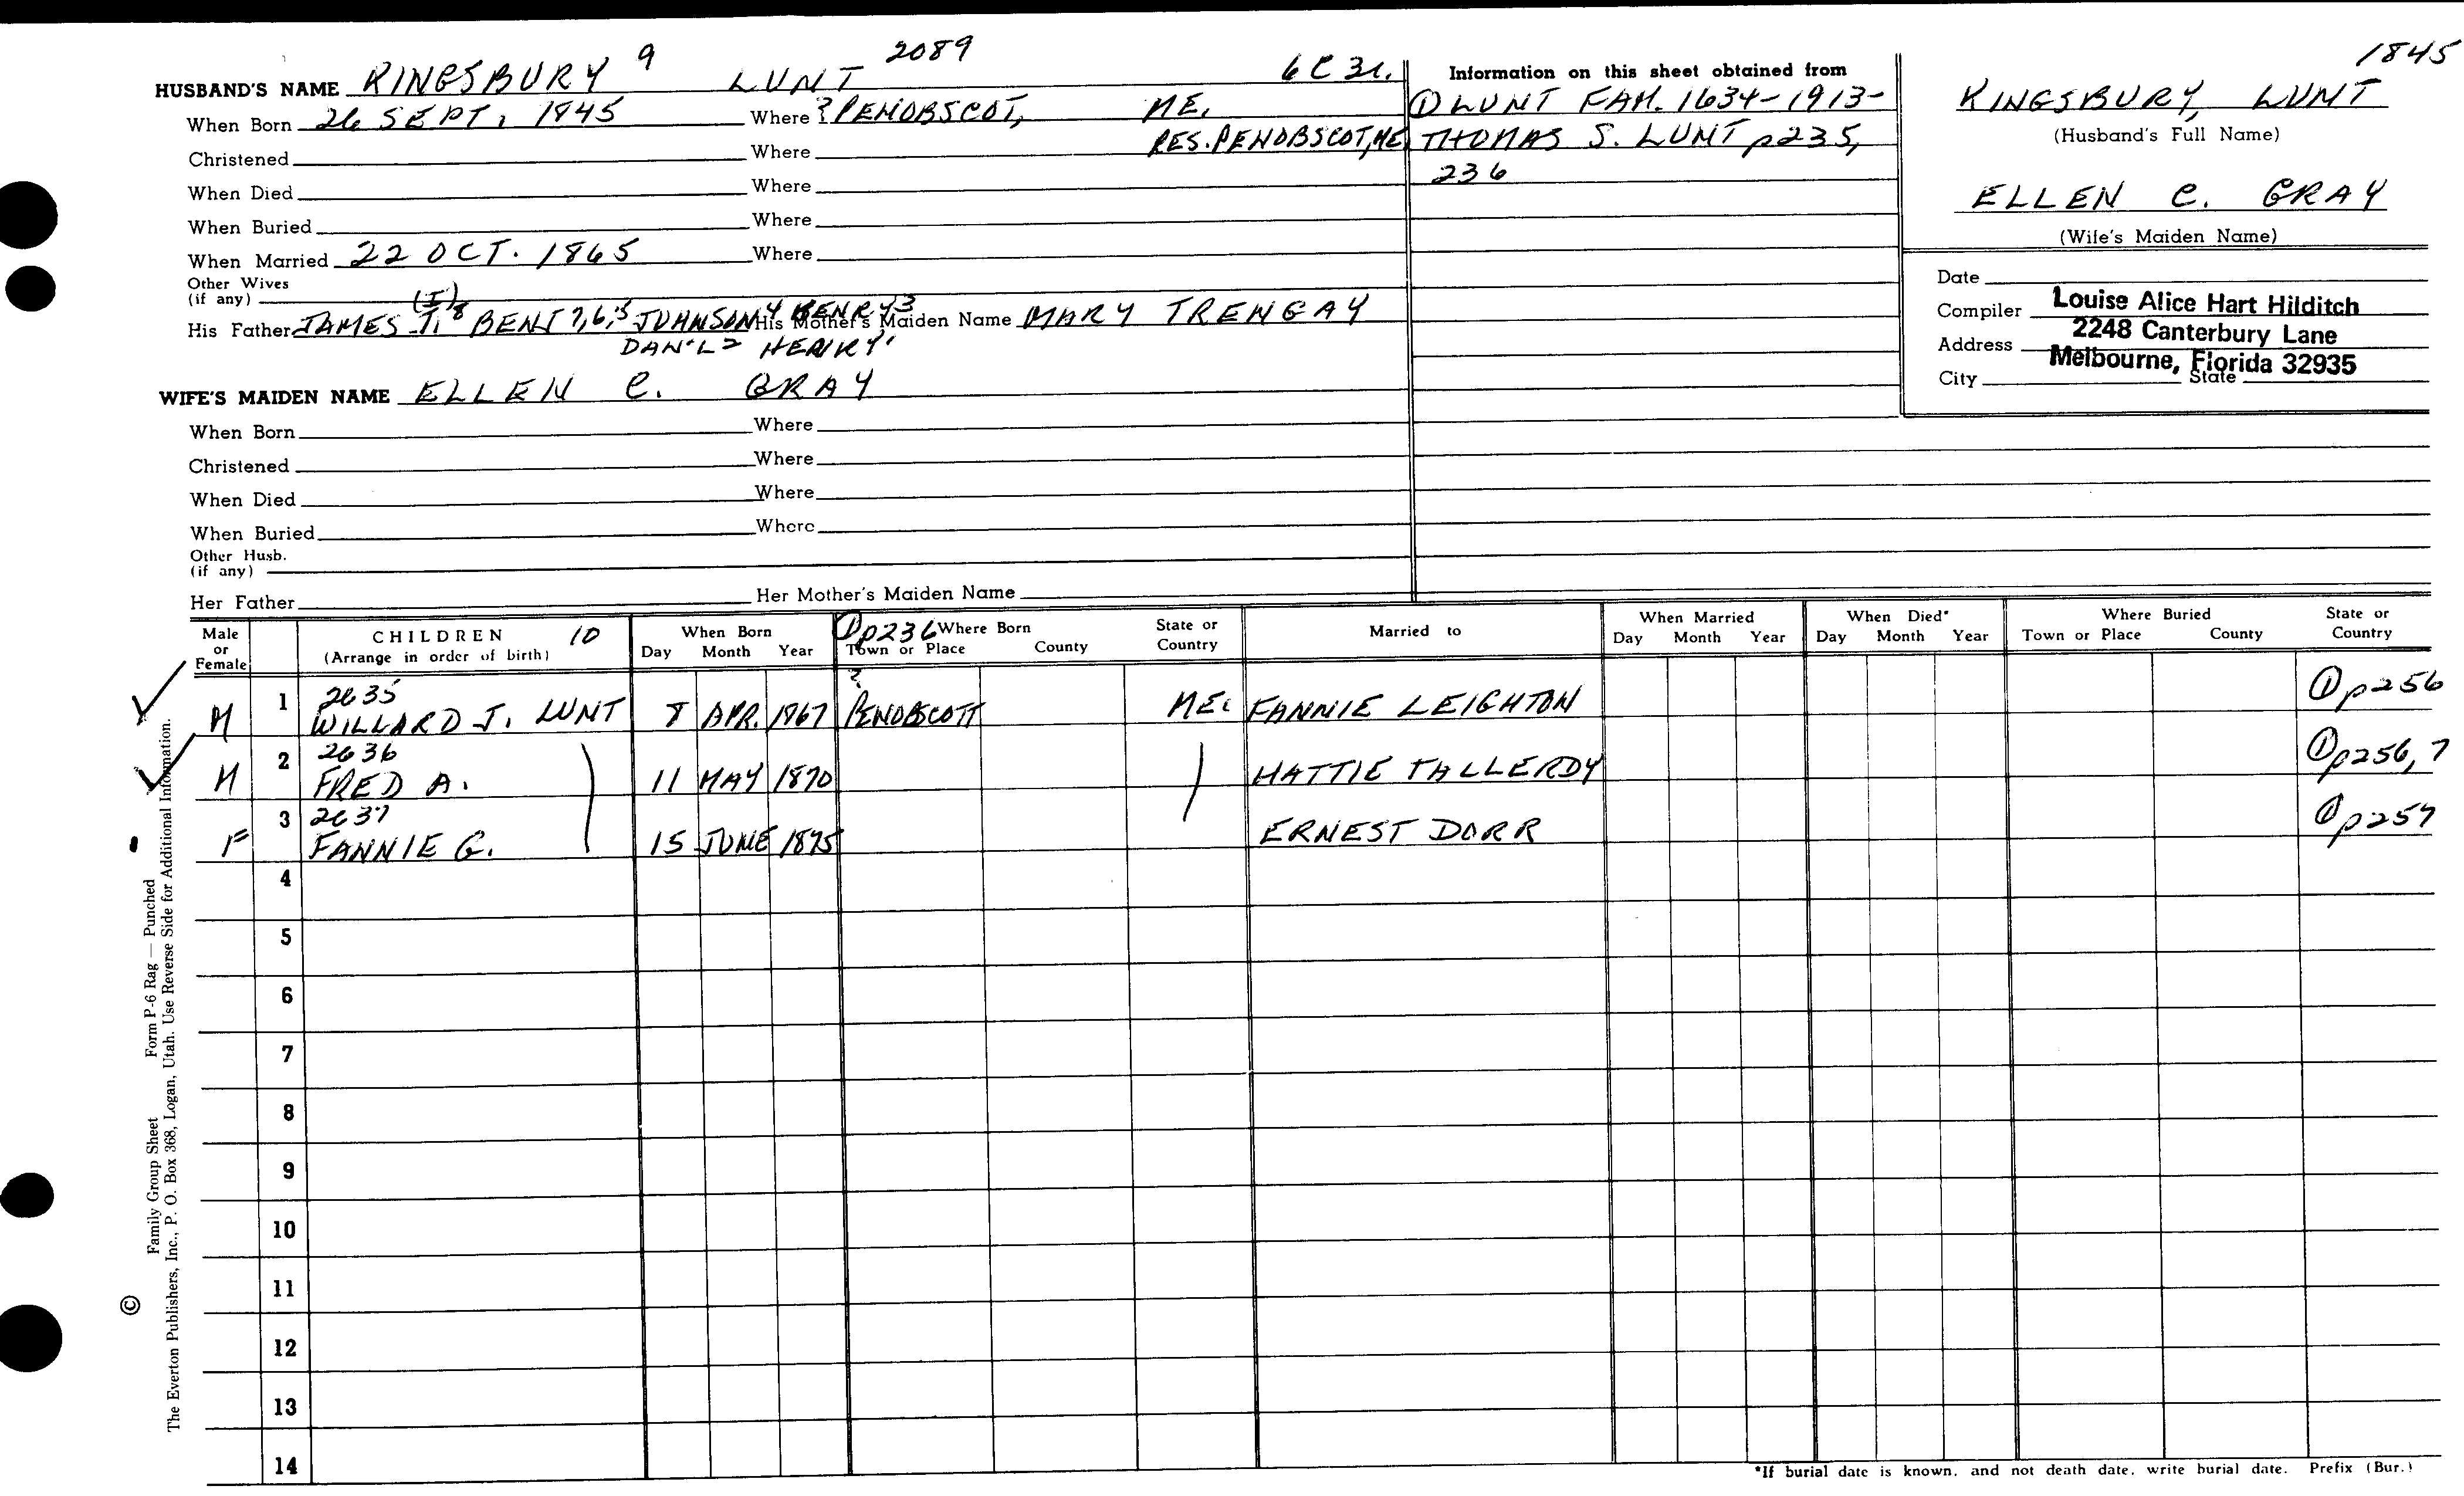 1845
HUSBAND'S NAME KINGSBURY 9 LUNT 2089
When Born 26 SEPT. 1845 Where ? PENOBSCOT, ME.
Christened Where RES. PENOBSCOT, ME
When Died Where
When Buried Where
When Married 22 OCT. 1865 Where
Other Wives
(if any)
His Father JAMES J. 8 BENJ 7,6,5 JOHNSON 4 HENRY 3 His Mother's Maiden Name MARY TRENGAY
DAN'L 2 HENRY 1
(I)
WIFE'S MAIDEN NAME ELLEN C. GRAY
When Born Where
Christened Where
When Died Where
When Buried Where
Other Husb.
(if any)
Her Father Her Mother's Maiden Name
Information on this sheet obtained from
① LUNT FAM. 1634-1913-
THOMAS S. LUNT p235,
236
KINGSBURY, LUNT
(Husband's Full Name)
ELLEN C. GRAY
(Wife's Maiden Name)
Date
Compiler Louise Alice Hart Hilditch
Address 2248 Canterbury Lane
Melbourne, Florida 32935
City State
Male or Female
CHILDREN 10
(Arrange in order of birth)
When Born
Day Month Year
① p236 Where Born
Town or Place County State or Country
Married to
When Married
Day Month Year
When Died*
Day Month Year
Where Buried
Town or Place County State or Country
M 1 2635 WILLARD J. LUNT 8 APR. 1867 ? PENOBSCOTT ME. FANNIE LEIGHTON ① p256
M 2 2636 FRED A. 11 MAY 1870 HATTIE TALLERDY ① p256, 7
F 3 2637 FANNIE G. 15 JUNE 1875 ERNEST DORR ① p257
4
5
6
7
8
9
10
11
12
13
14
*If burial date is known, and not death date, write burial date. Prefix (Bur.)
© Family Group Sheet Form P-6 Rag — Punched
The Everton Publishers, Inc., P. O. Box 368, Logan, Utah. Use Reverse Side for Additional Information.